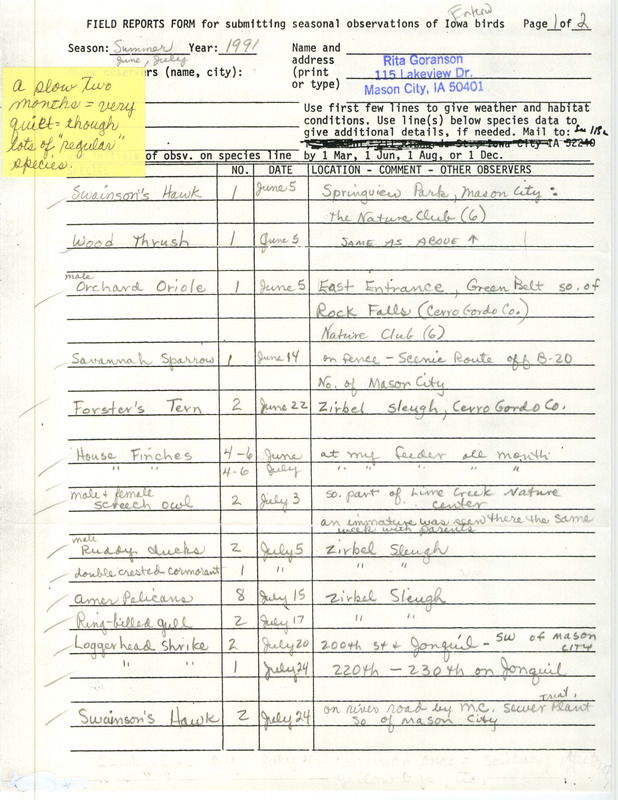 Entered
FIELD REPORTS FORM for submitting seasonal observations of Iowa birds Page 1 of 2
Season: Summer Year: 1991
June, July
Name and
address
(print
or type)
Rita Goranson
115 Lakeview Dr.
Mason City, IA 50401
ers (name, city):
a slow two
months = very
quiet = though
lots of "regular"
species.
Use first few lines to give weather and habitat
conditions. Use line(s) below species data to
give additional details, if needed. Mail to:
Iowa City IA 52240
of obsv. on species line by 1 Mar, 1 Jun, 1 Aug, or 1 Dec.
NO. DATE LOCATION - COMMENT - OTHER OBSERVERS
Swainson's Hawk 1 June 5 Springview Park, Mason City:
The Nature Club (6)
Wood Thrush 1 June 5 SAME AS ABOVE ↑
male
Orchard Oriole 1 June 5 East Entrance, Green Belt so. of
Rock Falls (Cerro Gordo Co.)
Nature Club (6)
Savannah Sparrow 1 June 14 on fence - Scenic Route off B-20
No. of Mason City
Forster's Tern 2 June 22 Zirbel Slough, Cerro Gordo Co.
House Finches 4-6 June at my feeder all month
" " 4-6 July " " " " "
male + female
screech owl 2 July 3 so. part of Lime Creek Nature
Center
an immature was seen there the same
week with parents
male
Ruddy ducks 2 July 5 Zirbel Slough
double crested cormorant 1 " " "
Amer Pelicans 8 July 15 Zirbel Slough
Ring-billed gull 2 July 17 " "
Loggerhead Shrike 2 July 20 200th St + Jonquil - SW of Mason
City
" " 1 July 24 220th - 230th on Jonquil
Swainson's Hawk 2 July 24 on river road by M.C. Sewer Treat. Plant
So of Mason City